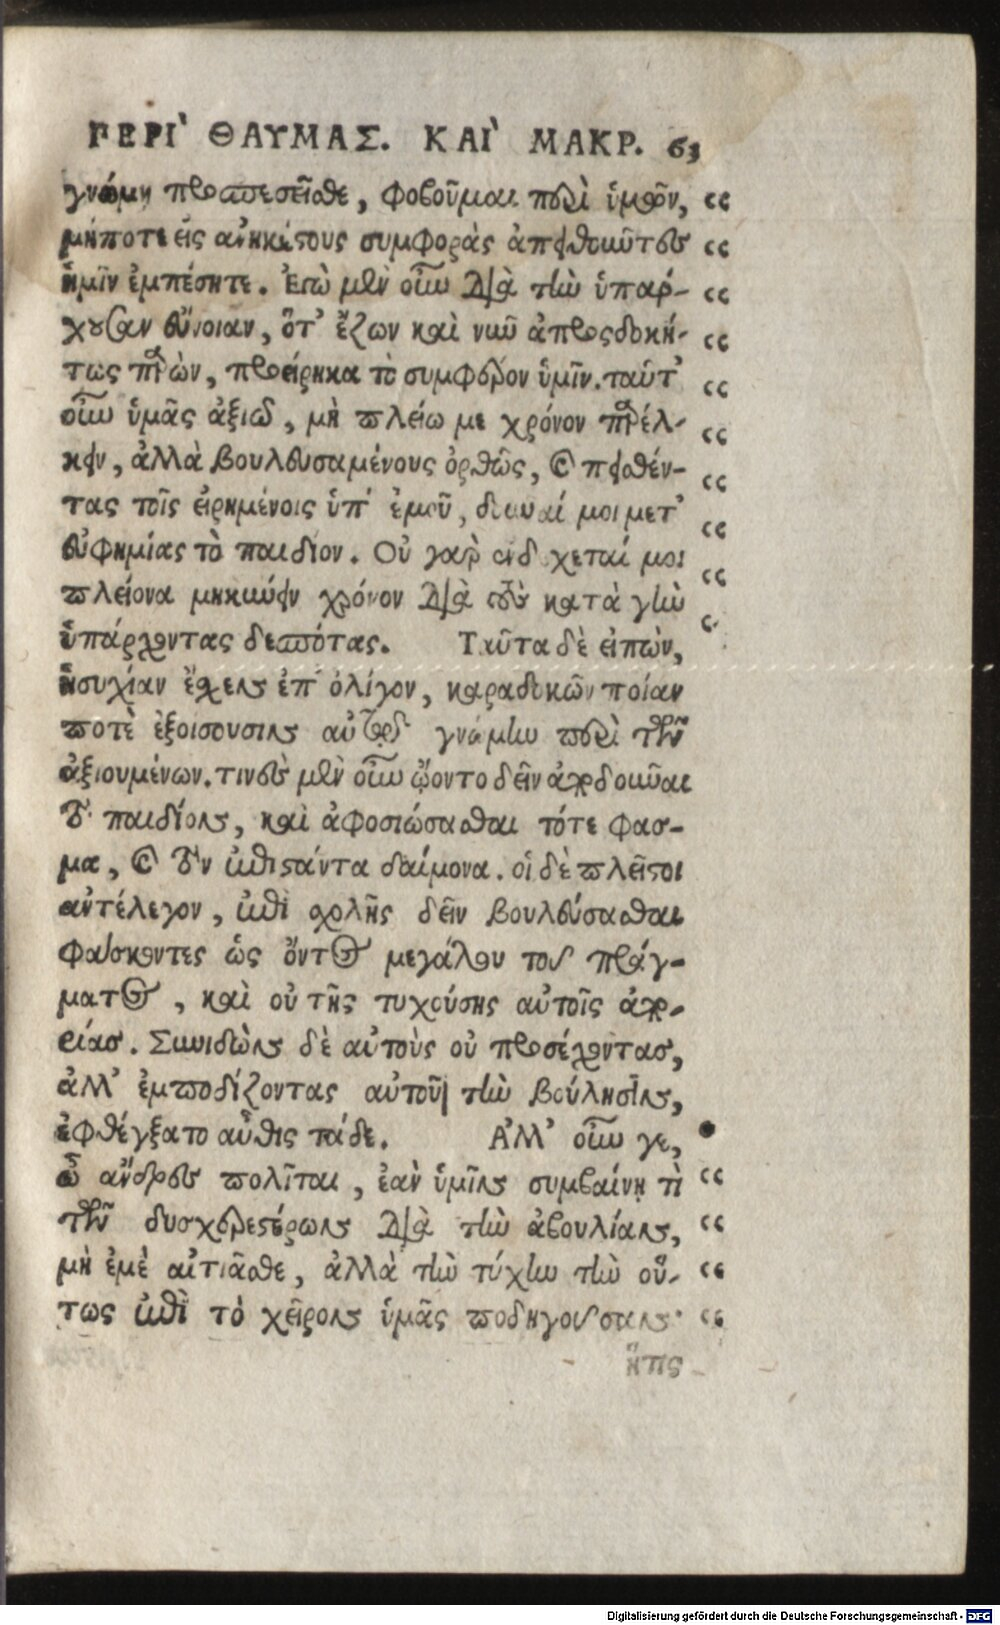 ΠΕΡΙ ̀ ΘΑΥΜΑΣ. ΚΑΙ ̀ ΜΑΚΡ. 63
γνώμῃ προσπεσεῖσθε, φοβοῦμαι περὶ ὑμῶν, “
μήποτε εἰς ἀνηκέστους συμφορὰς ἀπειθοῦντες “
ἡμῖν ἐμπέσητε. Ἐγὼ μὲν οὖν διὰ τὴν ὑπάρ- “
χουσαν εὔνοιαν, ὅτ' ἔζων καὶ νῦν ἀπροσδοκή- “
τως παρὼν, προείρηκα τὸ συμφέρον ὑμῖν. ταῦτ' “
οὖν ὑμᾶς ἀξιῶ, μὴ πλείω με χρόνον παρέλ- “
κειν, ἀλλὰ βουλευσαμένους ὀρθῶς, καὶ πεισθέν- “
τας τοῖς εἰρημένοις ὑπ' ἐμοῦ, δοῦναί μοι μετ' “
εὐφημίας τὸ παιδίον. Οὐ γὰρ ἐνδέχεταί μοι “
πλείονα μηκύνειν χρόνον διὰ τοὺς κατὰ γῆν “
ὑπάρχοντας δεσπότας. Ταῦτα δὲ εἰπὼν,
ἡσυχίαν ἔσχεν ἐπ' ὀλίγον, καραδοκῶν ποίαν
ποτὲ ἐξοίσουσιν αὐτῷ γνώμην περὶ τῶν
ἀξιουμένων. τινὲς μὲν οὖν ᾤοντο δεῖν ἀποδοῦναι
τὸ παιδίον, καὶ ἀφοσιώσασθαι τότε φασ-
μα, καὶ τὸν ἐπιστάντα δαίμονα. οἱ δὲ πλεῖστοι
ἀντέλεγον, ἐπὶ σχολῆς δεῖν βουλεύσασθαι
φάσκοντες ὡς ὄντος μεγάλου τοῦ πράγ-
ματος, καὶ οὐ τῆς τυχούσης αὐτοῖς ἀπο-
ρίας. Συνιδὼν δὲ αὐτοὺς οὐ προσέχοντας,
ἀλλ' ἐμποδίζοντας αὐτοῦ τὴν βούλησιν,
ἐφθέγξατο αὖθις τάδε. Ἀλλ' οὖν γε,
ὦ ἄνδρες πολῖται, ἐὰν ὑμῖν συμβαίνῃ τὶ “
τῶν δυσχερεστέρων διὰ τὴν ἀβουλίαν, “
μὴ ἐμὲ αἰτιᾶσθε, ἀλλὰ τὴν τύχην τὴν οὕ- “
τως ἐπὶ τὸ χεῖρον ὑμᾶς ποδηγοῦσαν· “
ἥτις
Digitalisierung gefördert durch die Deutsche Forschungsgemeinschaft - DFG